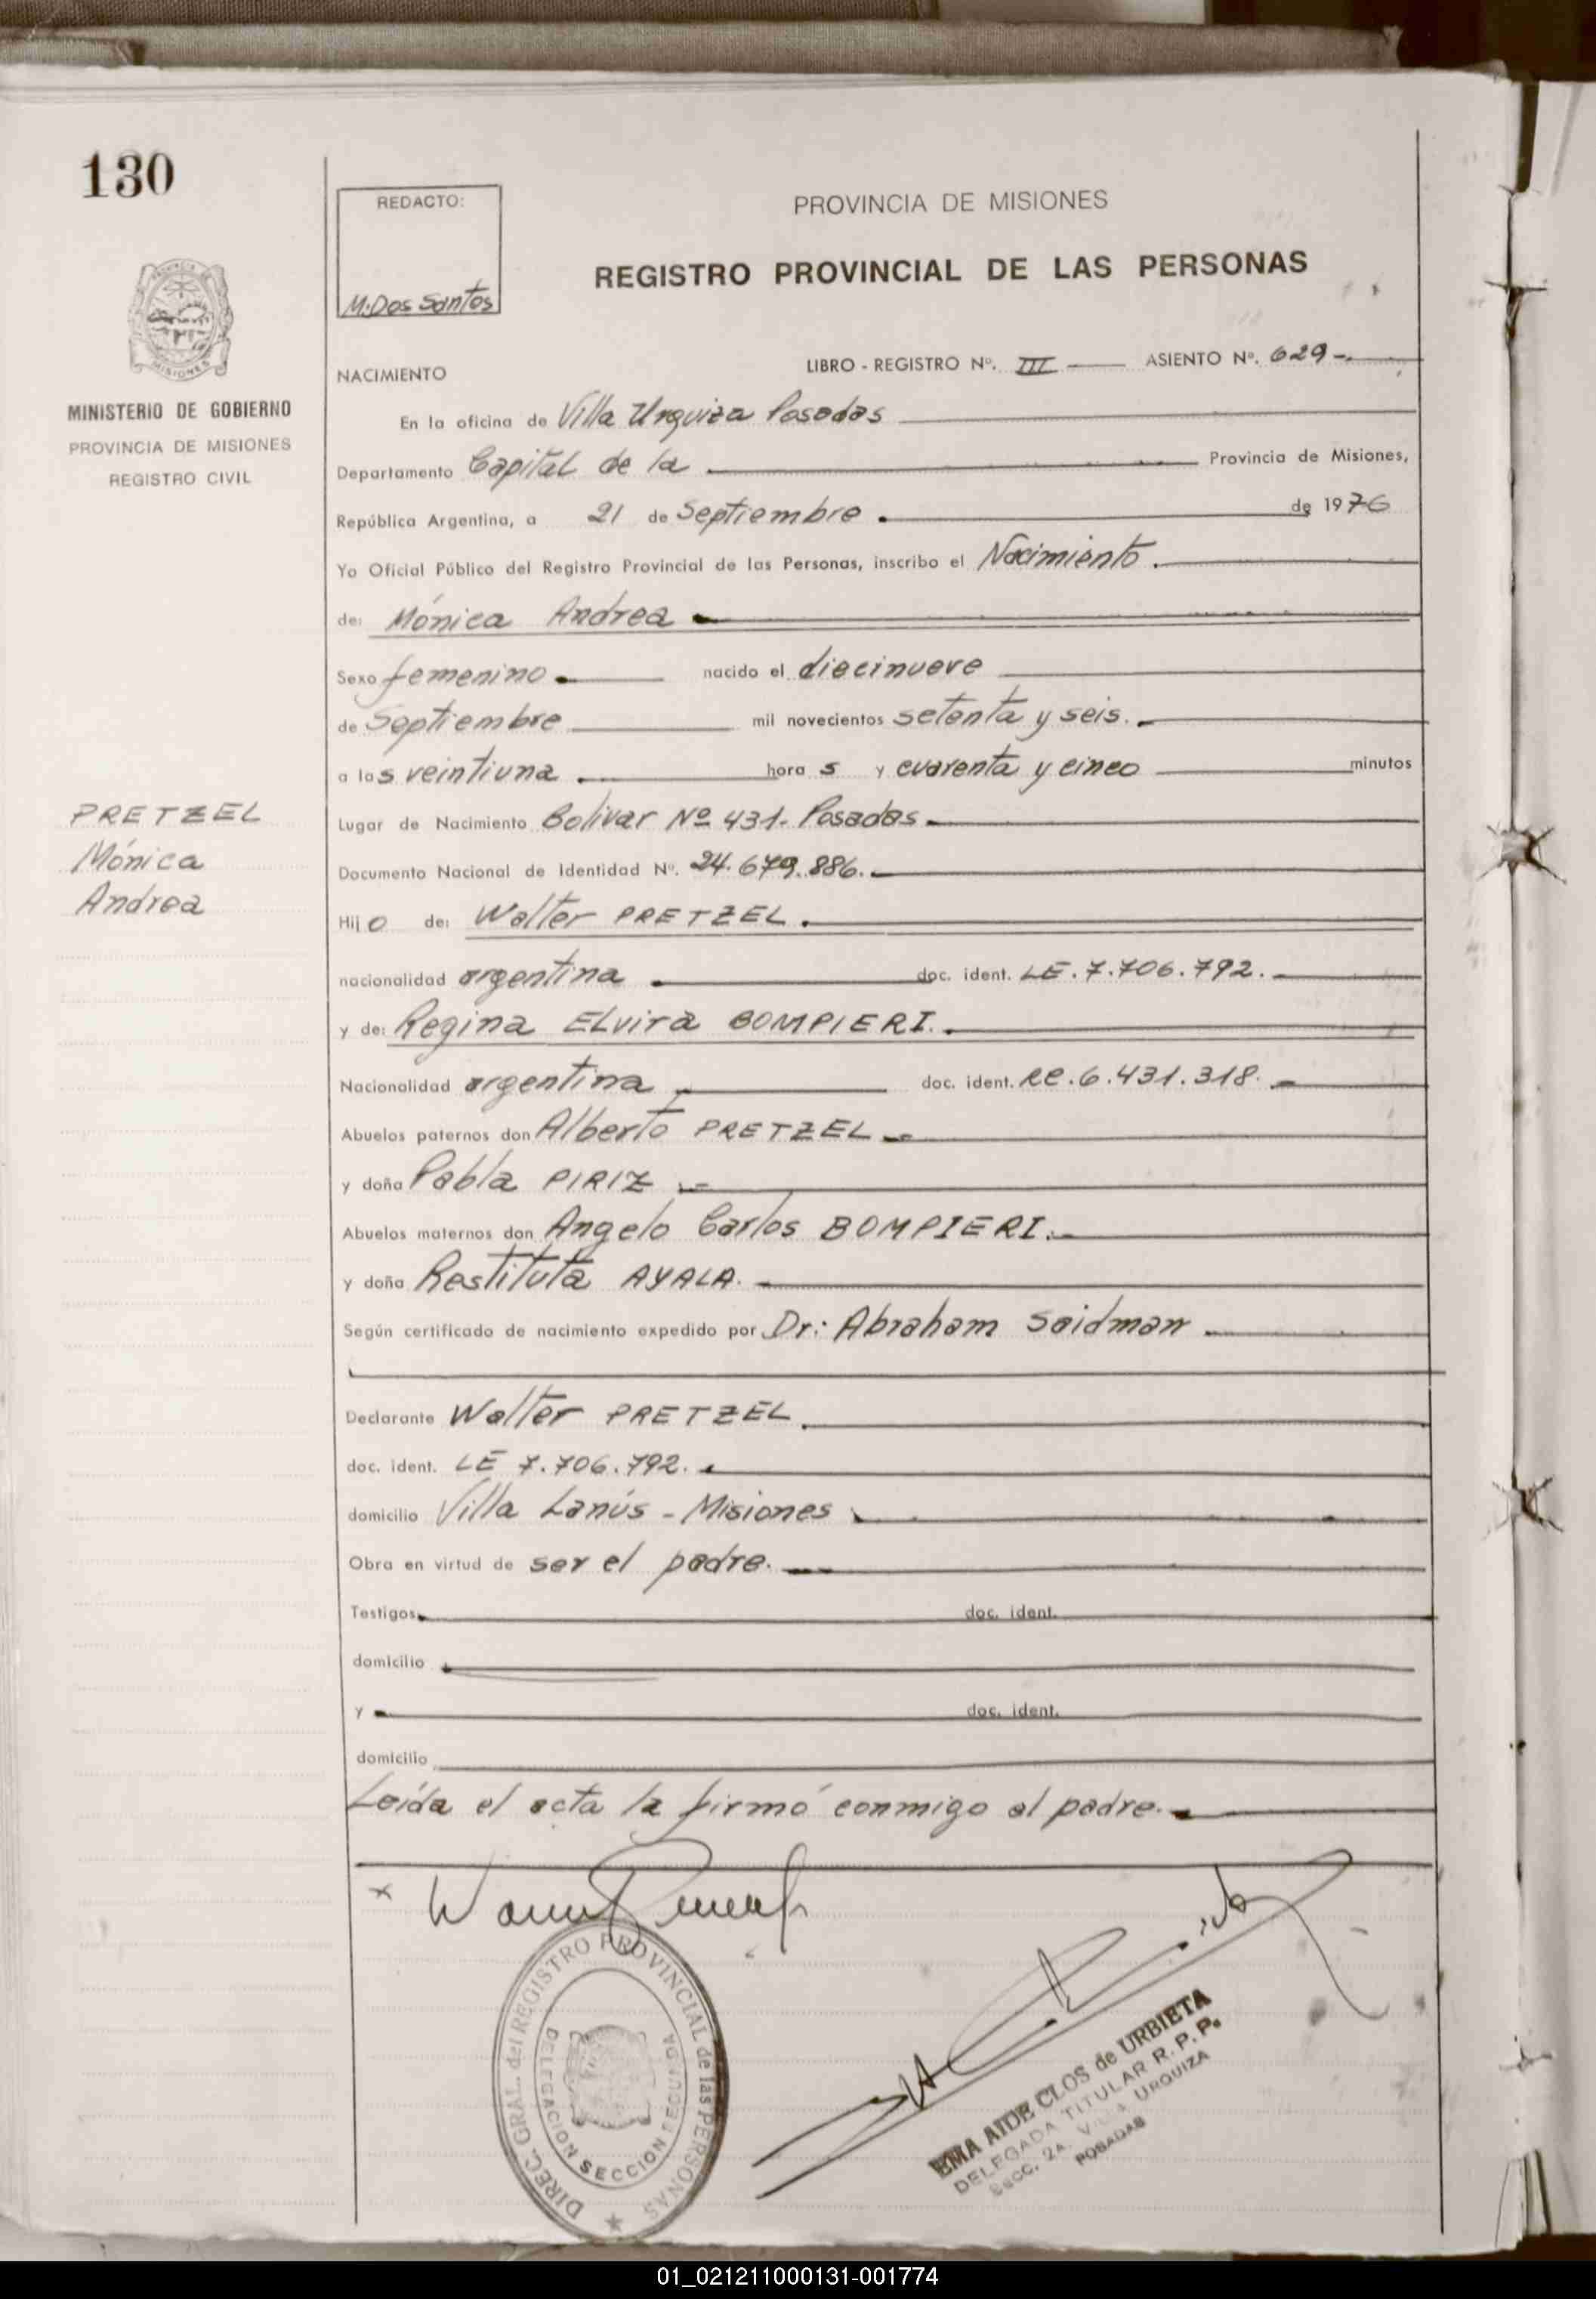 130
PROVINCIA DE MISIONES
MINISTERIO DE GOBIERNO
PROVINCIA DE MISIONES
REGISTRO CIVIL
PRETZEL
Mónica
Andrea
REDACTO:
M. Dos Santos
PROVINCIA DE MISIONES
REGISTRO PROVINCIAL DE LAS PERSONAS
LIBRO - REGISTRO Nº. III ASIENTO Nº. 629-.
NACIMIENTO
En la oficina de Villa Urquiza Posadas
Departamento Capital de la Provincia de Misiones,
República Argentina, a 21 de Septiembre . de 1976
Yo Oficial Público del Registro Provincial de las Personas, inscribo el Nacimiento.
de: Mónica Andrea
Sexo femenino nacido el diecinueve
de Septiembre mil novecientos setenta y seis.
a las veintiuna . hora s y cuarenta y cinco minutos
Lugar de Nacimiento Bolivar Nº 431- Posadas
Documento Nacional de Identidad Nº. 24.679.886.
Hijo de: Walter PRETZEL .
nacionalidad argentina . doc. ident. LE. 7.706.792.
y de: Regina ELvira BOMPIERI.
Nacionalidad argentina doc. ident. RC. 6.431.318.
Abuelos paternos don Alberto PRETZEL
y doña Pabla PIRIZ
Abuelos maternos don Angelo Carlos BOMPIERI.
y doña Restituta AYALA.
Según certificado de nacimiento expedido por Dr: Abraham Saidman
Declarante Walter PRETZEL.
doc. ident. LE 7.706.792.
domicilio Villa Lanús - Misiones
Obra en virtud de ser el padre.
Testigos doc. ident.
domicilio
y doc. ident.
domicilio
Leída el acta la firmó conmigo el padre.
x
DIREC. GRAL. del REGISTRO PROVINCIAL de las PERSONAS
DELEGACION SECCION SEGUNDA
EMA AIDE CLOS de URBIETA
DELEGADA TITULAR R. P. P.
Secc. 2a. VILLA URQUIZA
POSADAS
01_021211000131-001774